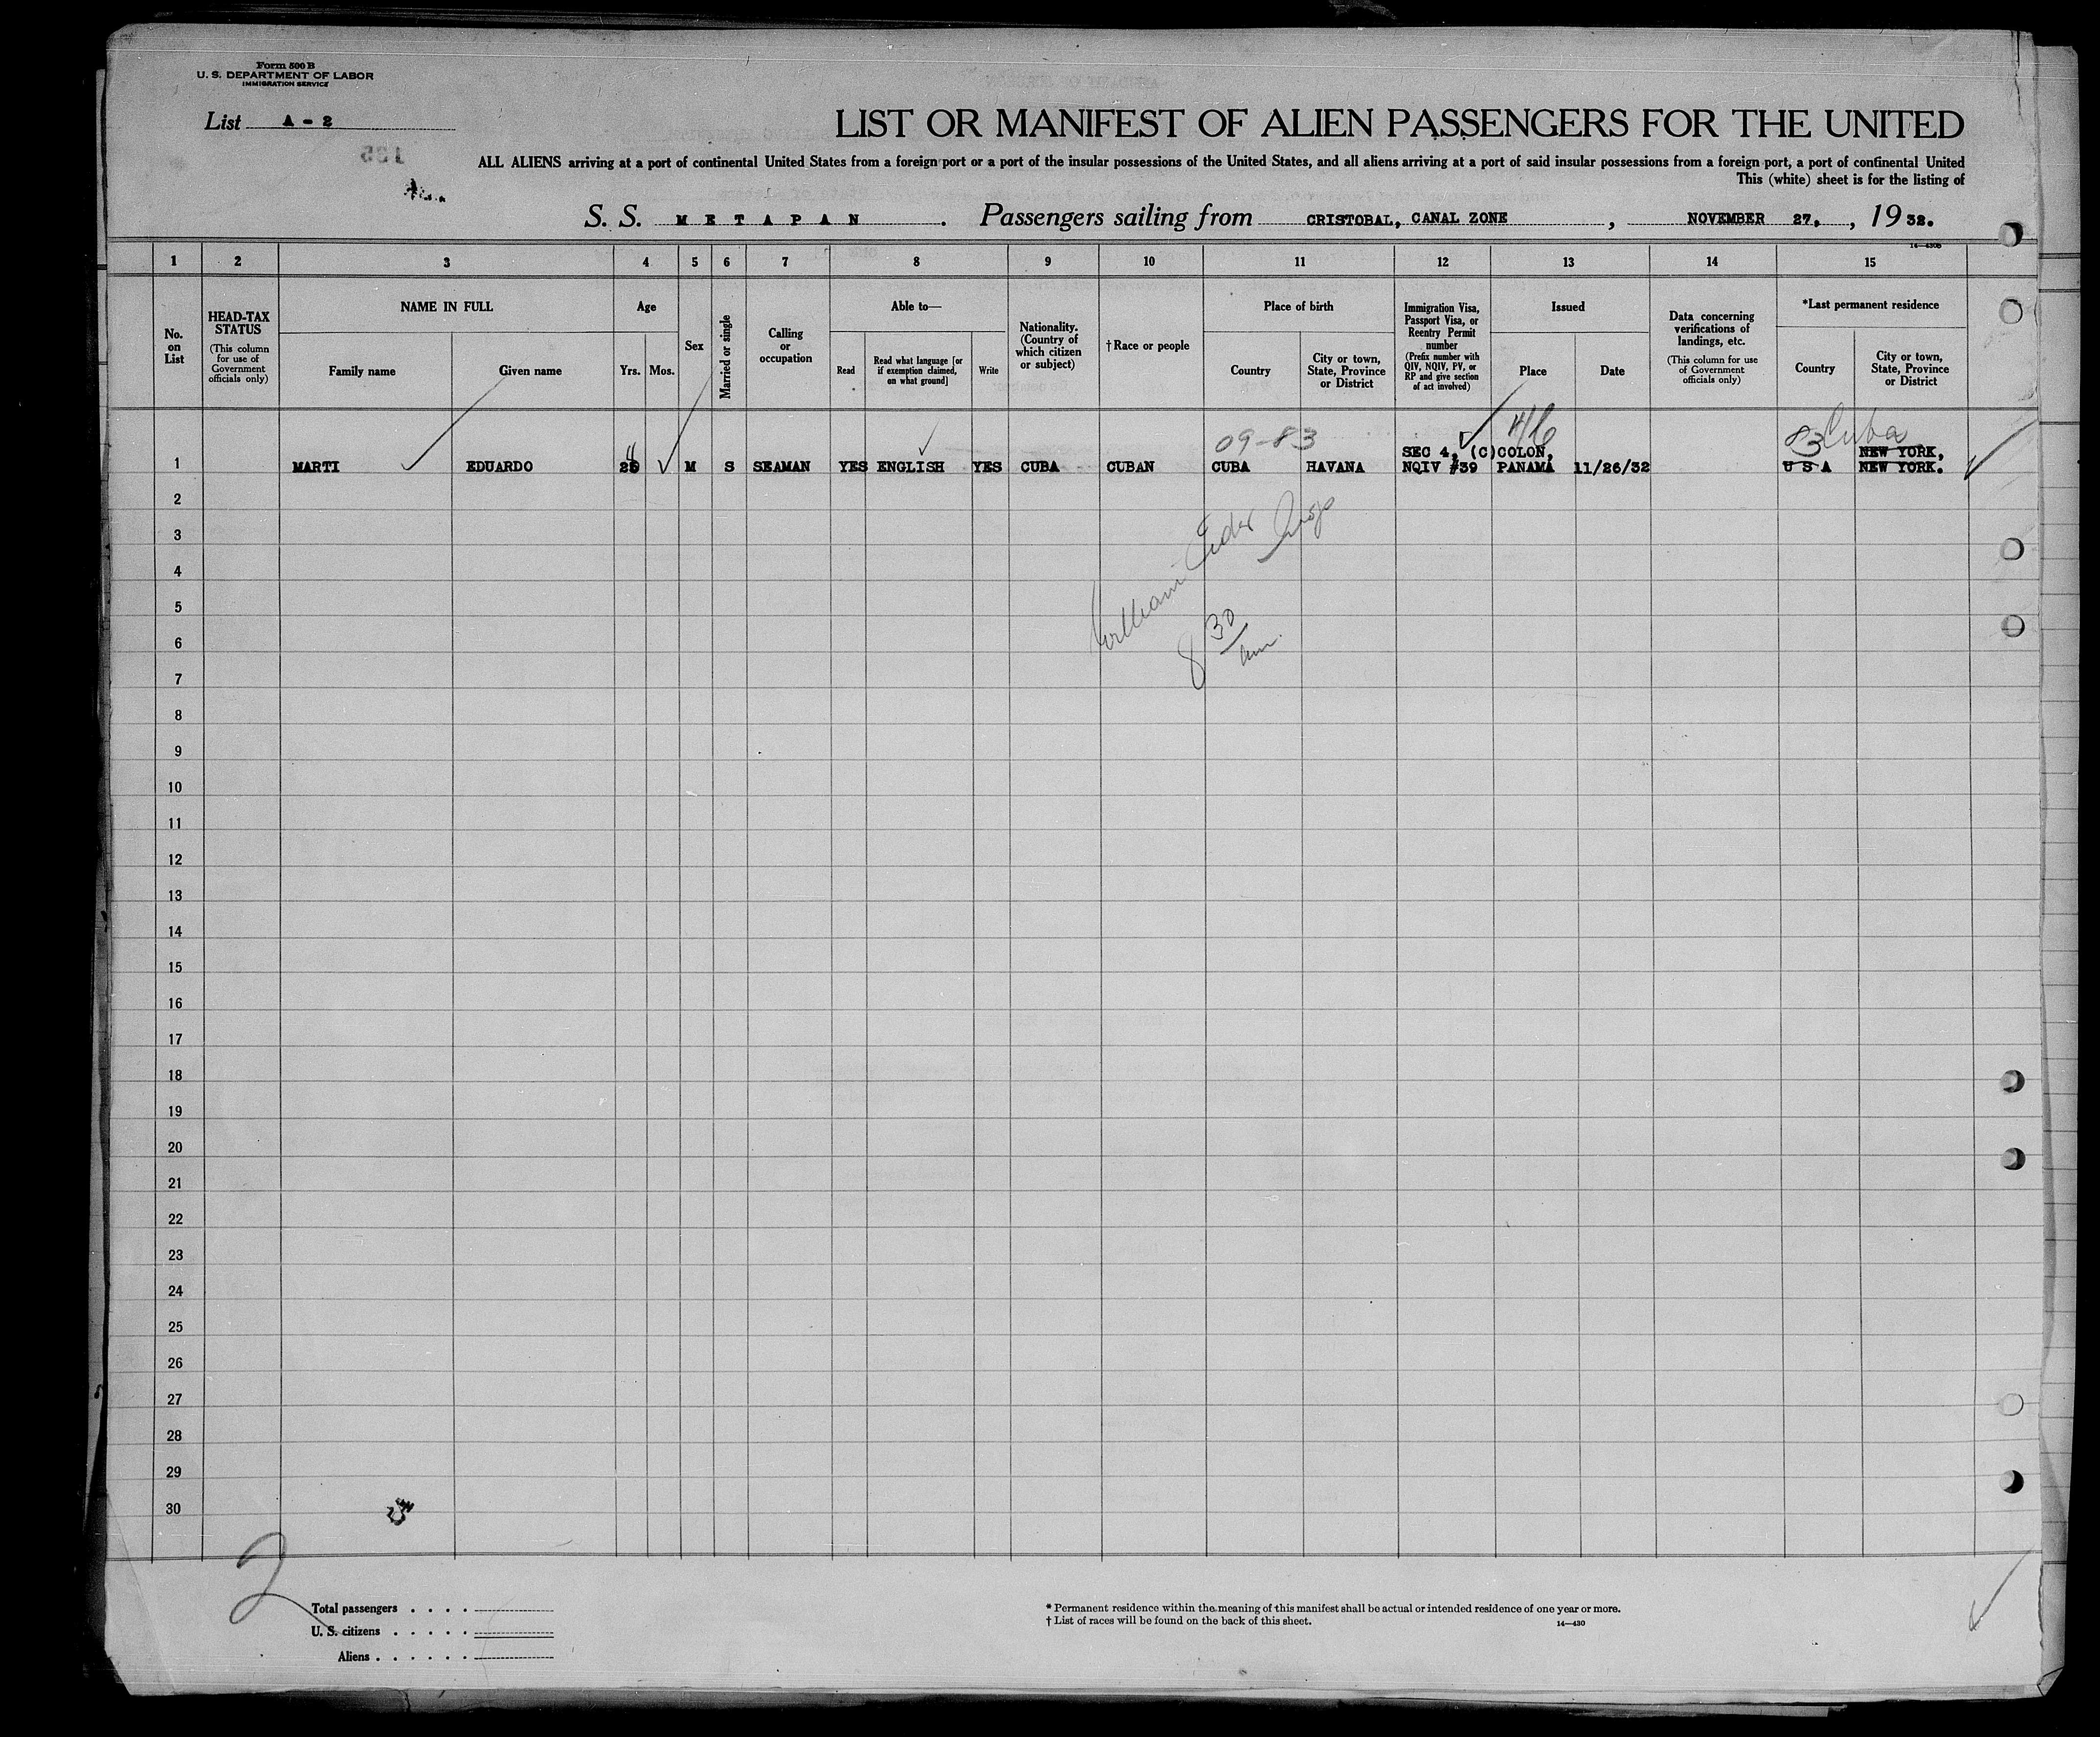 Form 500 B
U. S. DEPARTMENT OF LABOR
IMMIGRATION SERVICE
List A - 2
LIST OR MANIFEST OF ALIEN PASSENGERS FOR THE UNITED
ALL ALIENS arriving at a port of continental United States from a foreign port or a port of the insular possessions of the United States, and all aliens arriving at a port of said insular possessions from a foreign port, a port of continental United
This (white) sheet is for the listing of
S. S. METAPAN. Passengers sailing from CRISTOBAL, CANAL ZONE, NOVEMBER 27, , 1932.
1 2 3 4 5 6 7 8 9 10 11 12 13 14 15
No. on List
HEAD-TAX STATUS
(This column for use of Government officials only)
NAME IN FULL
Family name
Given name
Age
Yrs. Mos.
Sex
Married or single
Calling or occupation
Able to—
Read
Read what language [or if exemption claimed, on what ground]
Write
Nationality. (Country of which citizen or subject)
†Race or people
Place of birth
Country
City or town, State, Province or District
Immigration Visa, Passport Visa, or Reentry Permit number
(Prefix number with QIV, NQIV, PV, or RP and give section of act involved)
Issued
Place
Date
Data concerning verifications of landings, etc.
(This column for use of Government officials only)
*Last permanent residence
Country
City or town, State, Province or District
09-83
83 Cuba
SEC 4, (C) COLON, NEW YORK,
1 MARTI EDUARDO M S SEAMAN YES ENGLISH YES CUBA CUBAN CUBA HAVANA NQIV #39 PANAMA 11/26/32 U S A NEW YORK.
2
3
4
5
6
7
8
9
10
11
12
13
14
15
16
17
18
19
20
21
22
23
24
25
26
27
28
29
30
William
8 30 am
2
Total passengers
U. S. citizens
Aliens
* Permanent residence within the meaning of this manifest shall be actual or intended residence of one year or more.
† List of races will be found on the back of this sheet.
14—430